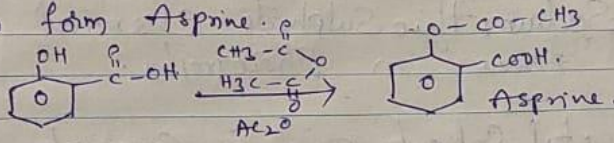 form Asprine.
OH
O
C-OH
O
O
CH3-C
O
H3C-C
O
Ac2O
O-CO-CH3
COOH.
O
Asprine